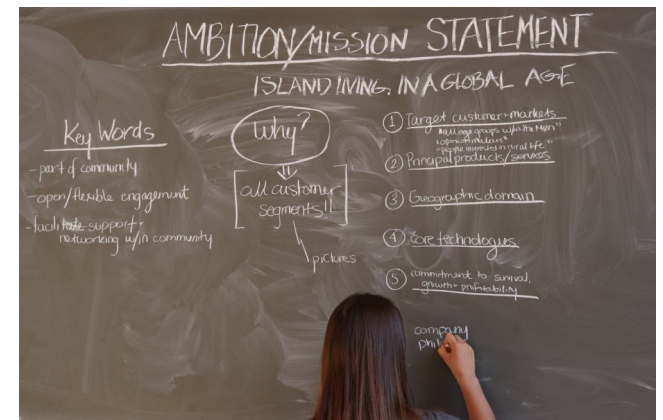 AMBITION/MISSION STATEMENT
ISLAND LIVING, IN A GLOBAL AGE
Key Words
- part of community
- open/flexible engagement
- facilitate support +
networking w/in community
Why?
[all customer
segments!!]
pictures
① Target customer + markets
"all age groups w/in the
"opinion makers"
"people interested in rural life"
② Principal products/services
③ Geographic domain
④ Core technologies
⑤ commitment to survival,
growth + profitability
company
phil